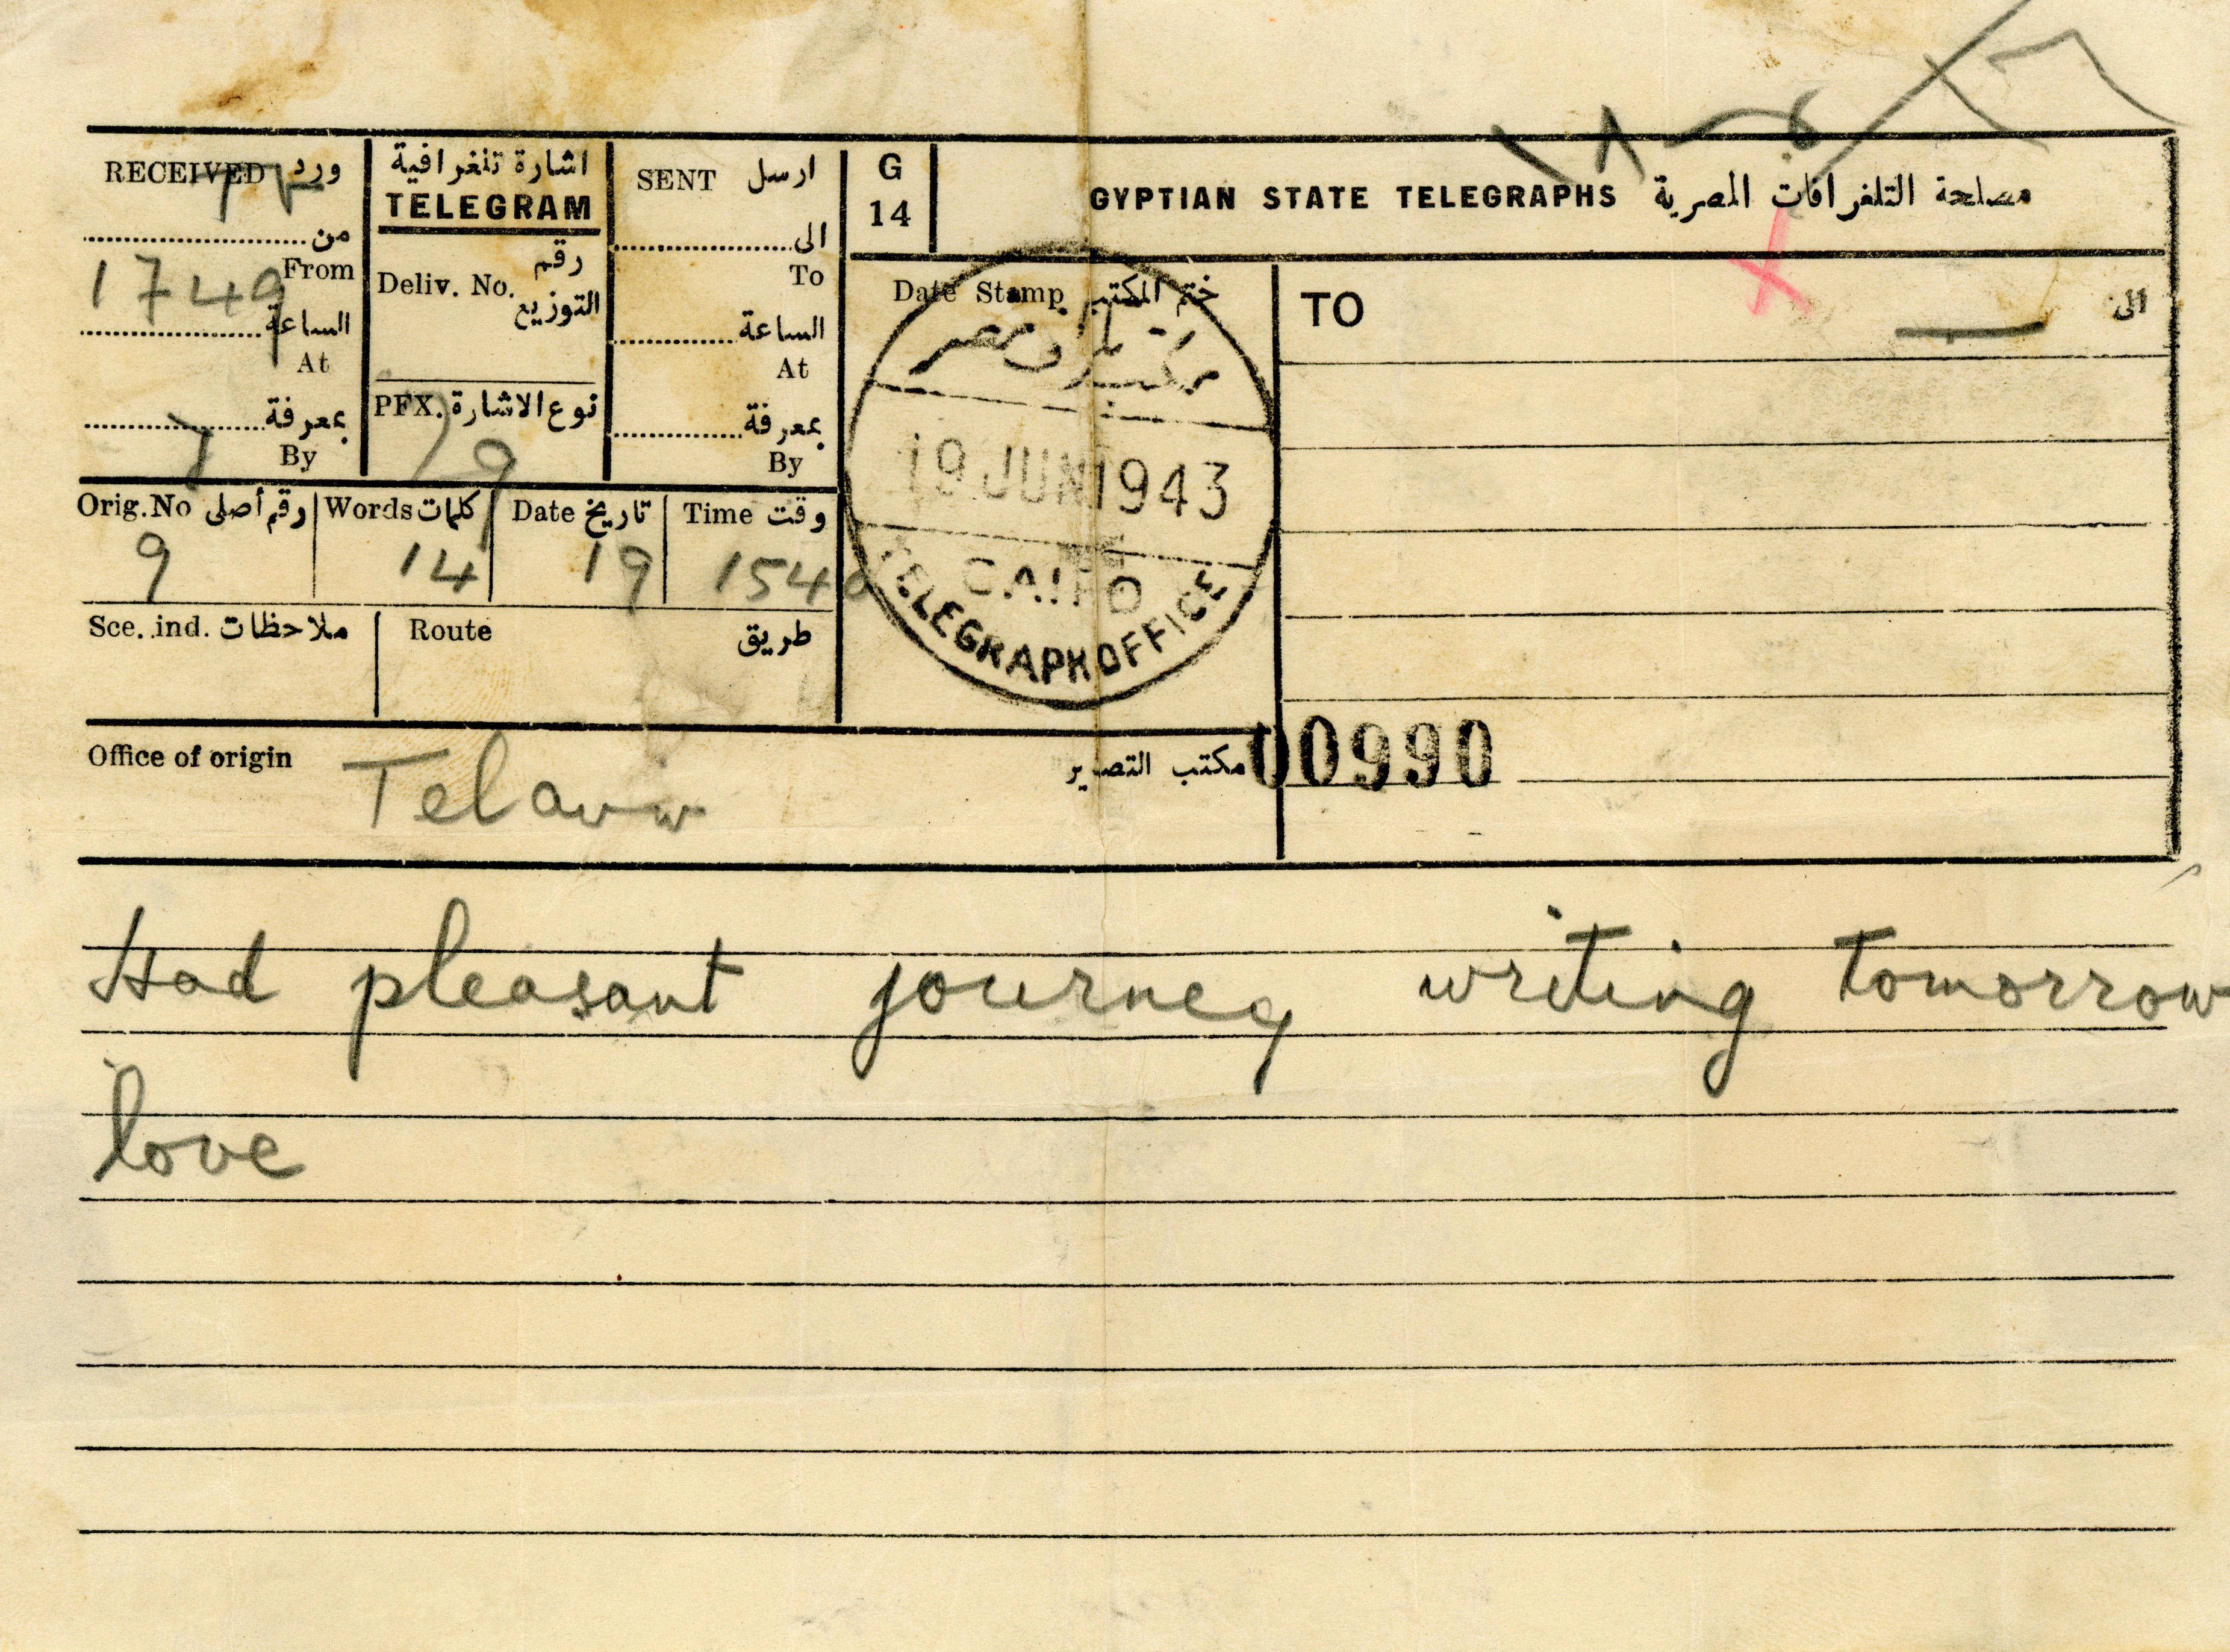 RECEIVED ورد
من
From
1749
الساعة
At
بمعرفة
By
اشارة تلغرافية
TELEGRAM
رقم
Deliv. No.
التوزيع
PFX. نوع الاشارة
SENT ارسل
الى
To
الساعة
At
بمعرفة
By
G
14
GYPTIAN STATE TELEGRAPHS مصلحة التلغرافات المصرية
Date Stamp ختم المكتب
19 JUN 1943
CAIRO
TELEGRAPH OFFICE
TO الى
Orig.No رقم أصلى Words كلمات Date تاريخ Time وقت
9 14 19 154
Sce. ind. ملاحظات Route طريق
Office of origin Telaviv مكتب التصدير
00990
Had pleasant journey writing tomorrow
love